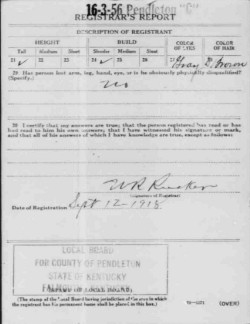 16-3-56 Pendleton "C"
REGISTRAR'S REPORT
DESCRIPTION OF REGISTRANT
HEIGHT BUILD COLOR OF EYES COLOR OF HAIR
Tall Medium Short Slender Medium Stout
21 ✓ 22 ✓ 23 24 25 26 27 Gray 28 Brown
29 Has person lost arm, leg, hand, eye, or is he obviously physically disqualified?
(Specify.)
No
30 I certify that my answers are true; that the person registered has read or has
had read to him his own answers; that I have witnessed his signature or mark,
and that all of his answers of which I have knowledge are true, except as follows:
W R Rucker
(Signature of Registrar)
Date of Registration Sept 12-1918
LOCAL BOARD
FOR COUNTY OF PENDLETON
STATE OF KENTUCKY
(STAMP OF LOCAL BOARD)
(The stamp of the Local Board having jurisdiction of the area in which
the registrant has his permanent home shall be placed in this box.)
(OVER)